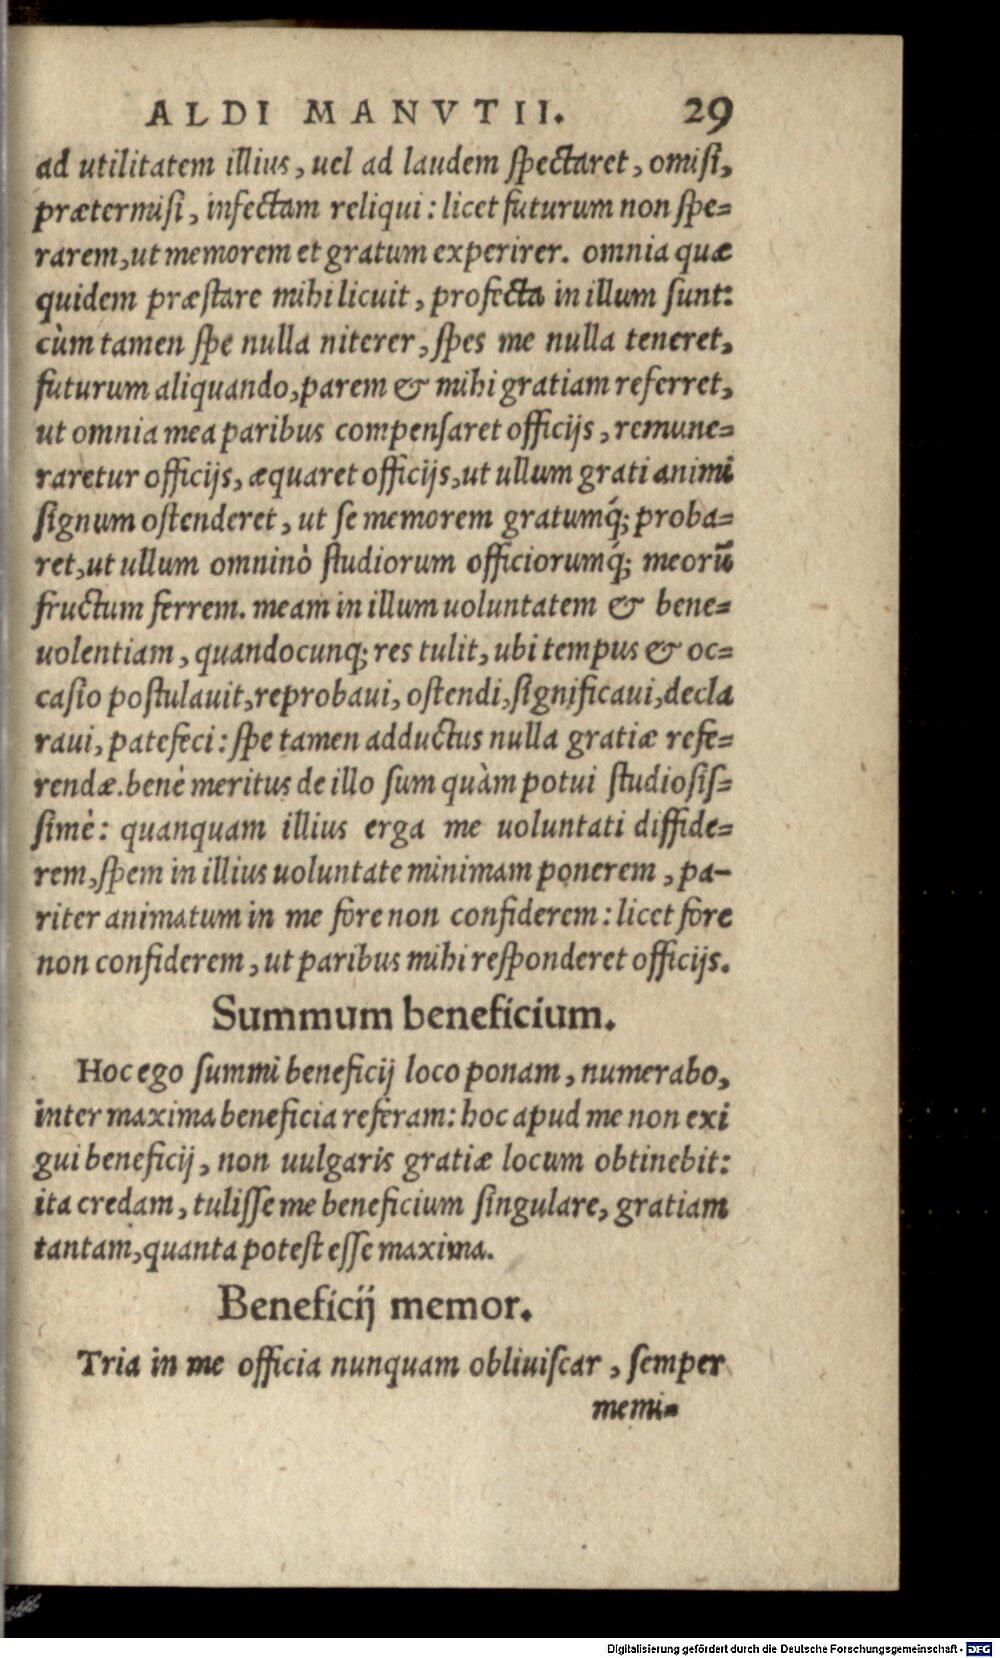 ALDI MANVTII. 29
ad utilitatem illius, uel ad laudem spectaret, omisi,
prætermisi, infectam reliqui: licet futurum non spe=
rarem, ut memorem et gratum experirer. omnia quæ
quidem præstare mihi licuit, profecta in illum sunt:
cùm tamen spe nulla niterer, spes me nulla teneret,
futurum aliquando, parem & mihi gratiam referret,
ut omnia mea paribus compensaret officijs, remune=
raretur officijs, æquaret officijs, ut ullum grati animi
signum ostenderet, ut se memorem gratumq́; proba=
ret, ut ullum omninò studiorum officiorumq́; meorū
fructum ferrem. meam in illum uoluntatem & bene=
uolentiam, quandocunq; res tulit, ubi tempus & oc=
casio postulauit, reprobaui, ostendi, significaui, decla
raui, patefeci: spe tamen adductus nulla gratiæ refe=
rendæ. benè meritus de illo sum quàm potui studiosis=
simè: quanquam illius erga me uoluntati diffide=
rem, spem in illius uoluntate minimam ponerem, pa-
riter animatum in me fore non confiderem: licet fore
non confiderem, ut paribus mihi responderet officijs.
Summum beneficium.
Hoc ego summi beneficij loco ponam, numerabo,
inter maxima beneficia referam: hoc apud me non exi
gui beneficij, non uulgaris gratiæ locum obtinebit:
ita credam, tulisse me beneficium singulare, gratiam
tantam, quanta potest esse maxima.
Beneficij memor.
Tria in me officia nunquam obliuiscar, semper
memi=
Digitalisierung gefördert durch die Deutsche Forschungsgemeinschaft - DFG